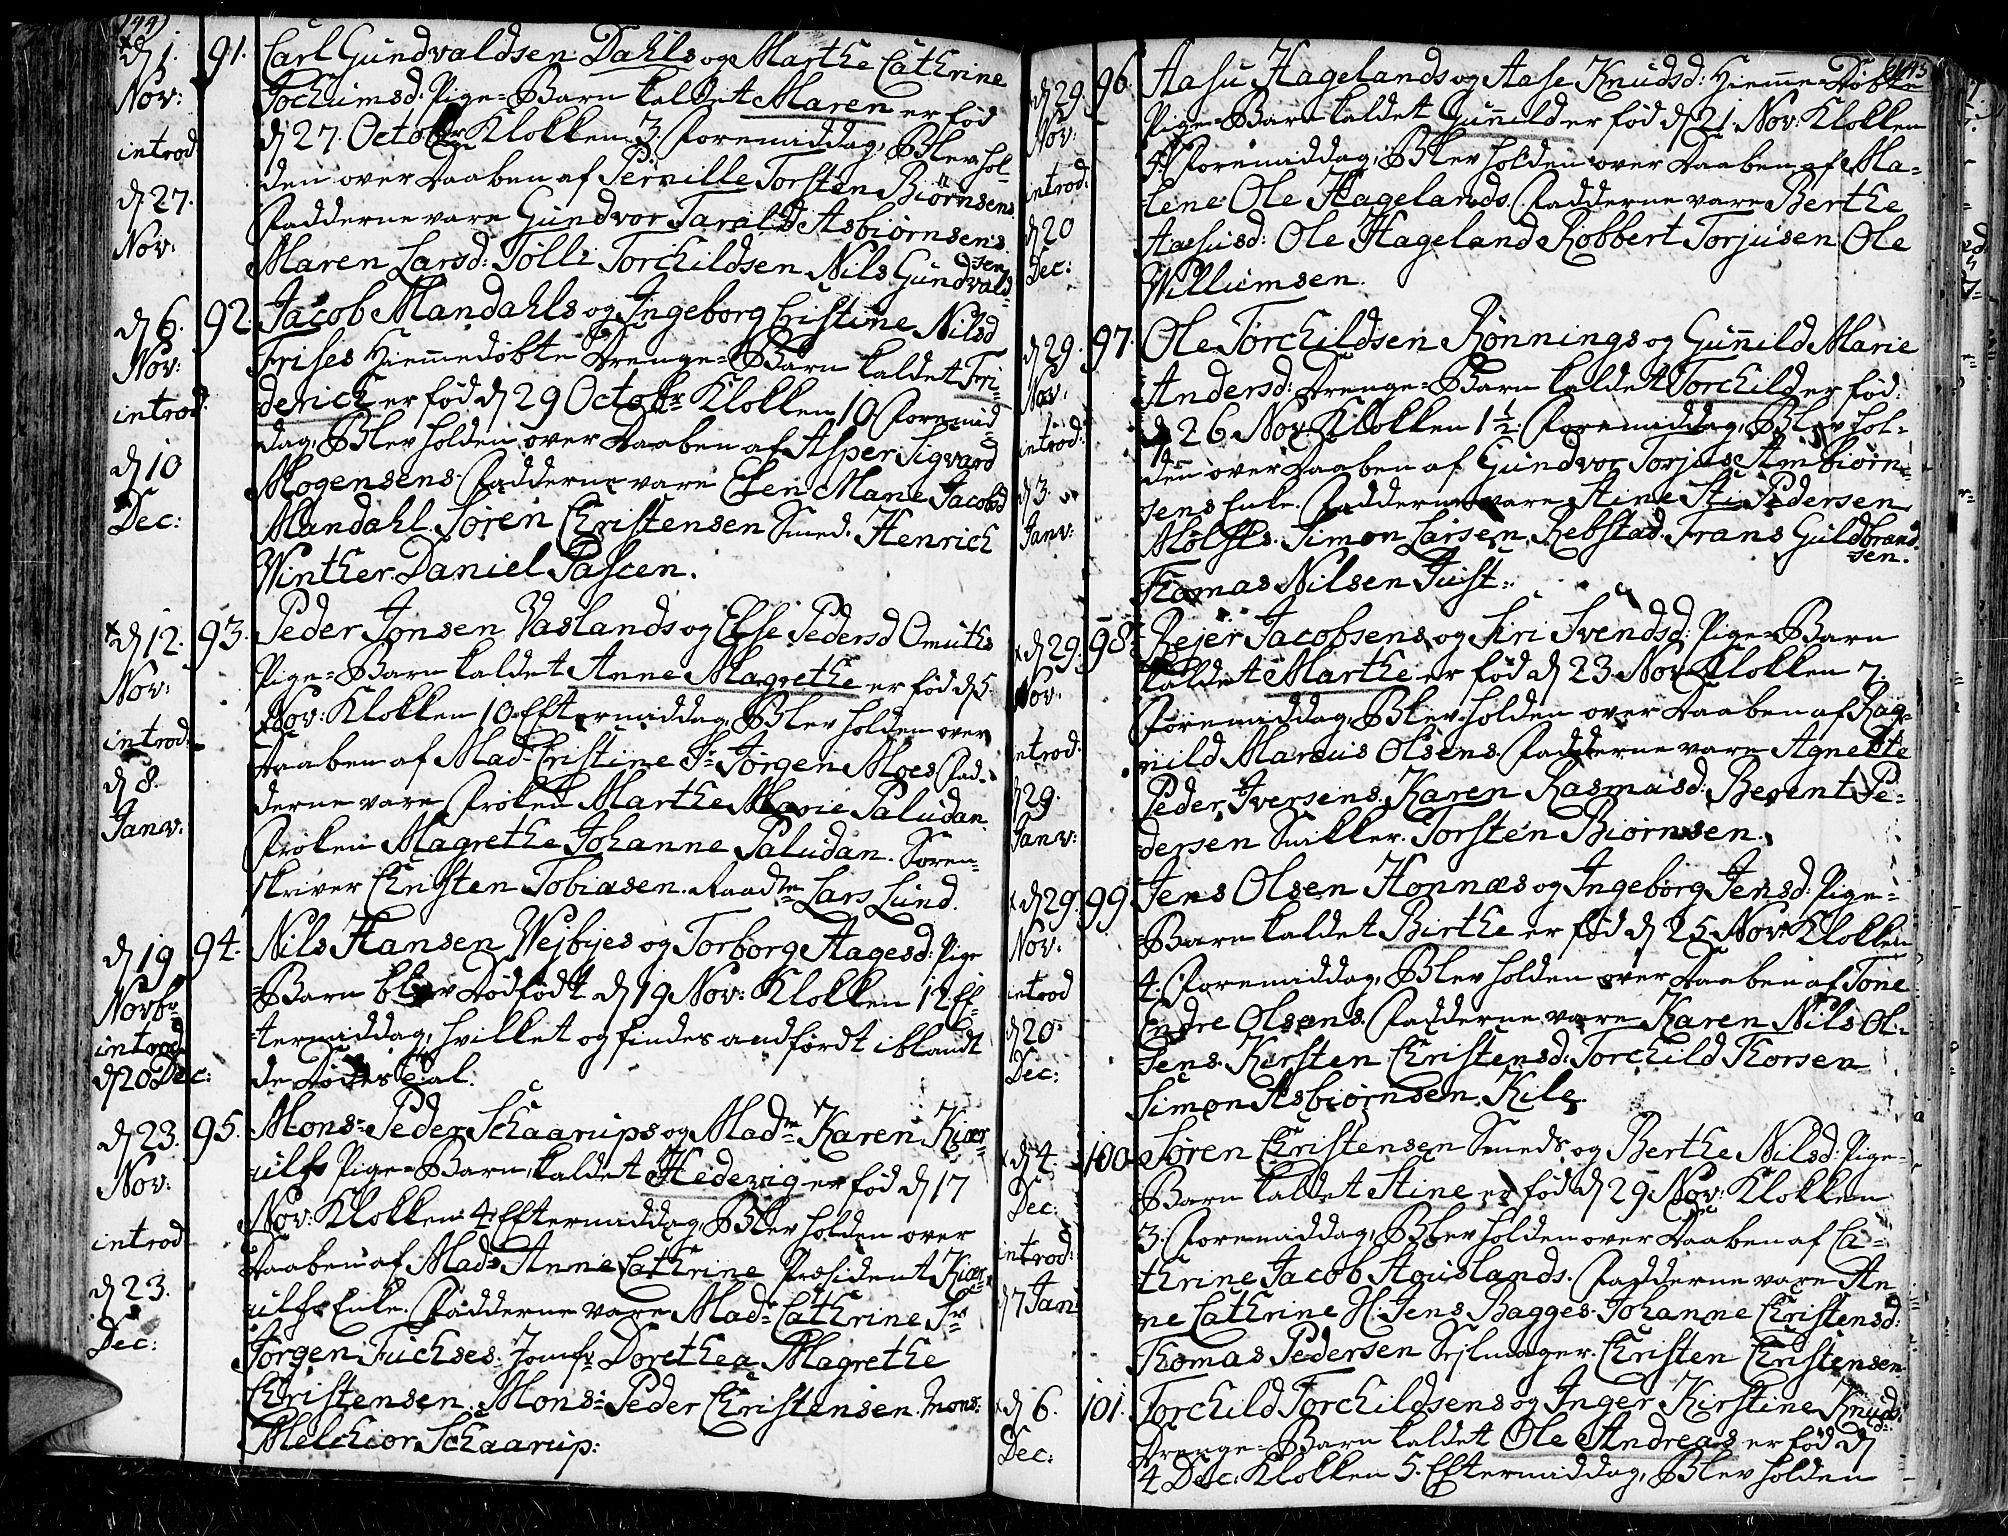 144)
d 1. Nov: introd d 27. Nov:
91. Carl Gundvaldsen Dahls og Marthe Cathrine
Jochumsd: Pige-Barn kaldet Maren er fød
d 27. Octobr Klokken 3. Foremiddag, Blev hol-
den over Daaben af Pernille Torsten Biörnsens
Fadderne vare Gundvor Tarald Asbiörnsens
Maren Larsd: Tolli Torchildsen Nils Gundvald-
sen
d 6. Nov: introd: d 10 Dec:
92. Jacob Mandahls og Ingeborg Cristine Nilsd
Frises Hiemmedøbte Drenge-Barn kaldet Fri-
derich er fød d 29 Octobr Klokken 10 Foremid
dag, Blev holden over Daaben af Asper Sigvard
Mogensens. Fadderne vare Elen Marie Jacobd
Mandahl. Sören Christensen Smed. Henrich
Winther. Daniel Pascen.
d 12. Nov: introd: d 8. Janv:
93. Peder Jonsen Vaslands og Else Pedersd Omuths
Pige-Barn kaldet Anne Magrethe er fød d 5
Nov: Klokken 10 Eftermiddag, Blev holden over
Daaben af Mad- Cristine Sr Jörgen Moes. Fad-
derne vare Frøken Marthe Marie Paludan.
Frøken Magrethe Johanne Paludan. Soren-
skriver Christen Tobiasen. Raadm Lars Lund.
d 19 Novbr introd d 20 Dec:
94. Nils Hansen Wejbyes og Torborg Aagesd: Pige
-Barn blev Dødfødt d 19 Nov: Klokken 12 Ef-
termiddag, hvilket og findes andført iblandt
de Dødes Tal.
d 23. Nov: introd d 23. Dec:
95. Mons= Peder Schaarups og Madm Karen Kiær-
ulfs Pige-Barn, kaldet Hedevig er fød d 17
Nov: Klokken 4 Eftermiddag, Blev holden over
Daaben af Mad= Anne Cathrine Præsident Kiær-
ulfs Enke. Fadderne vare Mad= Cathrine Sr
Jörgen Fuchses. Jomfr Dorethea Magrethe
Christensen. Mons= Peder Christensen. Mons:
Melchior Schaarup:
145
d 29 Nov: introd: d 20 Dec:
96. Aasu Hagelands og Aase Knudsd: Hiemme-Døbte
Pige-Barn kaldet Gunnild er fød d 21 Nov: Klokken
4 Foremiddag, Blev holden over Daaben af Ma-
lene Ole Hagelands. Fadderne vare Berthe
Aasusd: Ole Hageland Robbert Torjusen Ole
Williumsen.
d 29. Nov: introd: d 3. Janv:
97. Ole Torchildsen Rönnings og Gunnild Marie
Andersd: Drenge-Barn kaldet Torchild er fød
d 26 Nov: Klokken 1½. Foremiddag, Blev hol-
den over Daaben af Gundvor Torjus Ambiörn-
sens Enke. Fadderne vare Stine Sti Pedersen
Simon Larsen Rebstad. Frans Guldbrand-
sen.
Thomas Nilsen Juist.
d 29. Nov. introd. d 29. Janv:
98. Rejer Jacobsens og Siri Svendsd: Pige-Barn
kaldet Marthe er fød d 23 Nov Klokken 7.
Foremiddag, Blev holden over Daaben af Rag-
nild Marcus Olsens. Fadderne vare Agnette
Peder Iversens. Karen Rasmusd: Berent Pe-
dersen Snikker. Torsten Biörnsen.
d 29 Nov. introd d 20 Dec:
99 Jens Olsen Honnæs og Ingeborg Jensd: Pige-
Barn kaldet Birthe er fød d 25 Nov: Klokken
4. Foremiddag, Blev holden over Daaben af Tone
Endre Olsens. Fadderne vare Karen Nils Ol-
sens. Kirsten Christensd: Torchild Thorsen
Simon Asbiörnsen. Kile.
d 4. Dec: introd: d 7 Jan
100 Sören Christensen Smeds og Berthe Nilsd: Pige-
Barn kaldet Stine er fød d 29 Nov: Klokken
3. Foremiddag, Blev holden over Daaben af Ca-
thrine Jacob Aguslands. Fadderne vare An
ne Cathrine H: Jens Bagges. Johanne Christensd:
Thomas Pedersen Sejlmager. Christen Christensen
d 6. Dec:
101. Torchild Torchildsens og Inger Kirstine Knuds
d:
Drenge-Barn kaldet Ole Andreas er fød d
4 Dec: Klokken 5. Eftermiddag, Blev holden